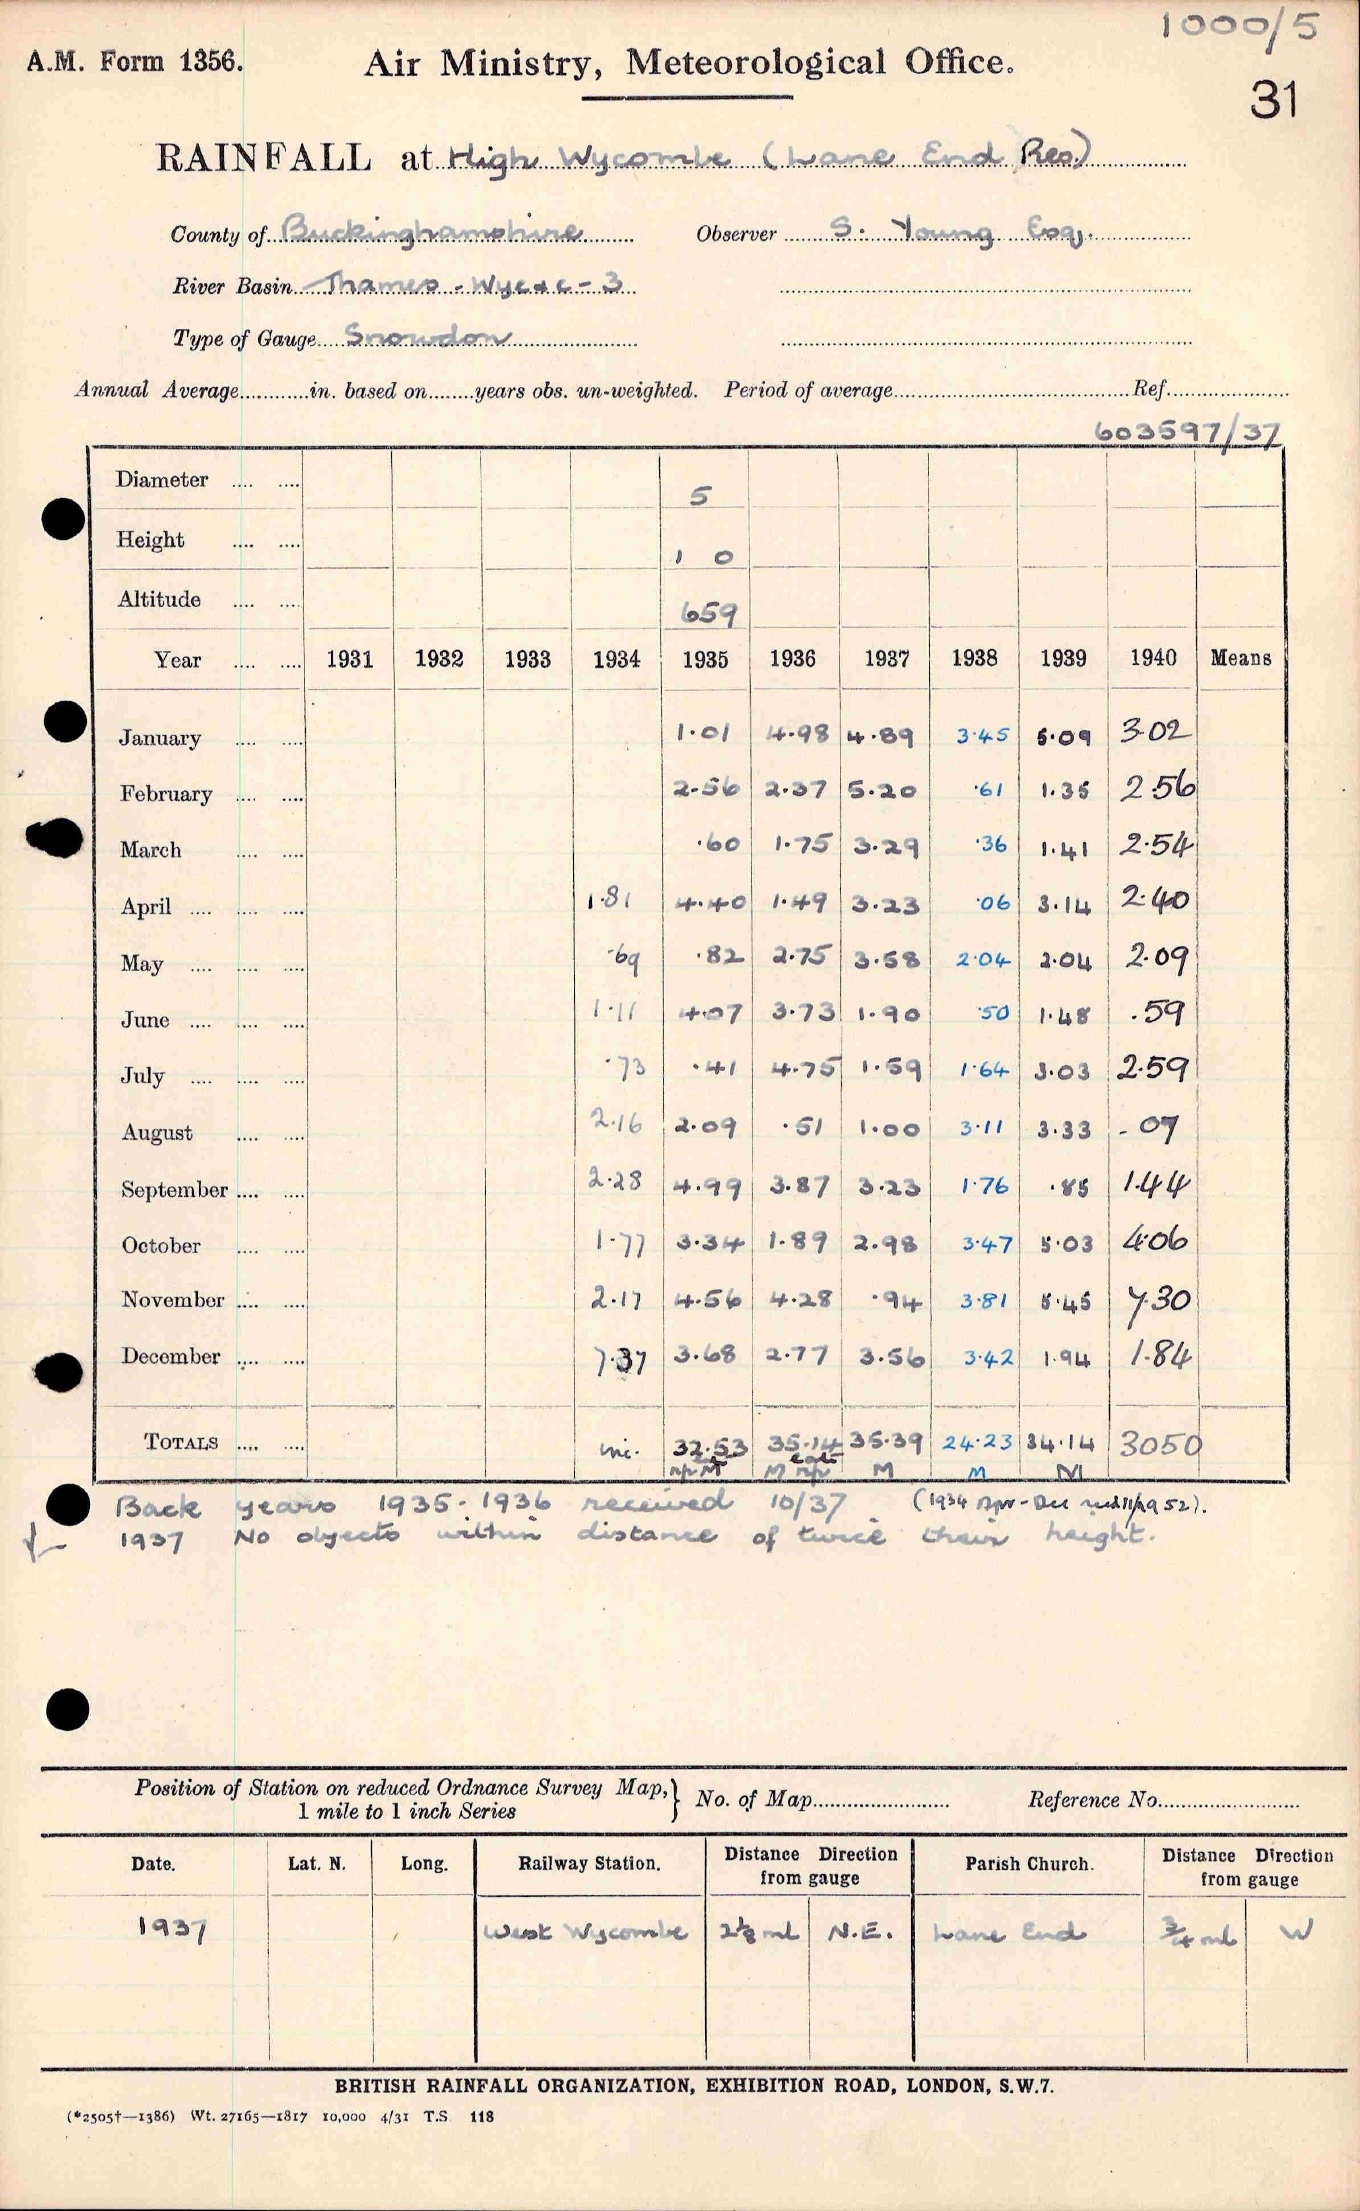 1000/5
A.M. Form 1356. Air Ministry, Meteorological Office.
31
RAINFALL at High Wycombe (Lane End Res.)
County of Buckinghamshire Observer S. Young Esq.
River Basin Thames - Wye &c - 3
Type of Gauge Snowdon
Annual Average............in. based on........years obs. un-weighted. Period of average............Ref............
603597/37
Diameter .... .... 5
Height .... .... 1 0
Altitude .... .... 659
Year .... .... 1931 1932 1933 1934 1935 1936 1937 1938 1939 1940 Means
January .... .... 1.01 4.98 4.89 3.45 5.09 3.02
February .... .... 2.56 2.37 5.20 .61 1.35 2.56
March .... .... .60 1.75 3.29 .36 1.41 2.54
April .... .... .... 1.81 4.40 1.49 3.23 .06 3.14 2.40
May .... .... .... .69 .82 2.75 3.58 2.04 2.04 2.09
June .... .... .... 1.11 4.07 3.73 1.90 .50 1.48 .59
July .... .... .... .73 .41 4.75 1.59 1.64 3.03 2.59
August .... .... 2.16 2.09 .51 1.00 3.11 3.33 .07
September .... .... 2.28 4.99 3.87 3.23 1.76 .85 1.44
October .... .... 1.77 3.34 1.89 2.98 3.47 5.03 4.06
November .... .... 2.17 4.56 4.28 .94 3.81 5.45 7.30
December .... .... 7.37 3.68 2.77 3.56 3.42 1.94 1.84
TOTALS .... .... inc. 32.53 35.14 35.39 24.23 34.14 3050
M M M M M
Back years 1935-1936 received 10/37 (1934 Apr-Dec 52).
1937 No objects within distance of twice their height.
Position of Station on reduced Ordnance Survey Map, 1 mile to 1 inch Series } No. of Map............ Reference No............
Date. Lat. N. Long. Railway Station. Distance Direction from gauge Parish Church. Distance Direction from gauge
1937 West Wycombe 2⅛ ml N.E. Lane End ¾ ml W
BRITISH RAINFALL ORGANIZATION, EXHIBITION ROAD, LONDON, S.W.7.
(*2505†—1386) Wt. 27165—1817 10,000 4/31 T.S. 118